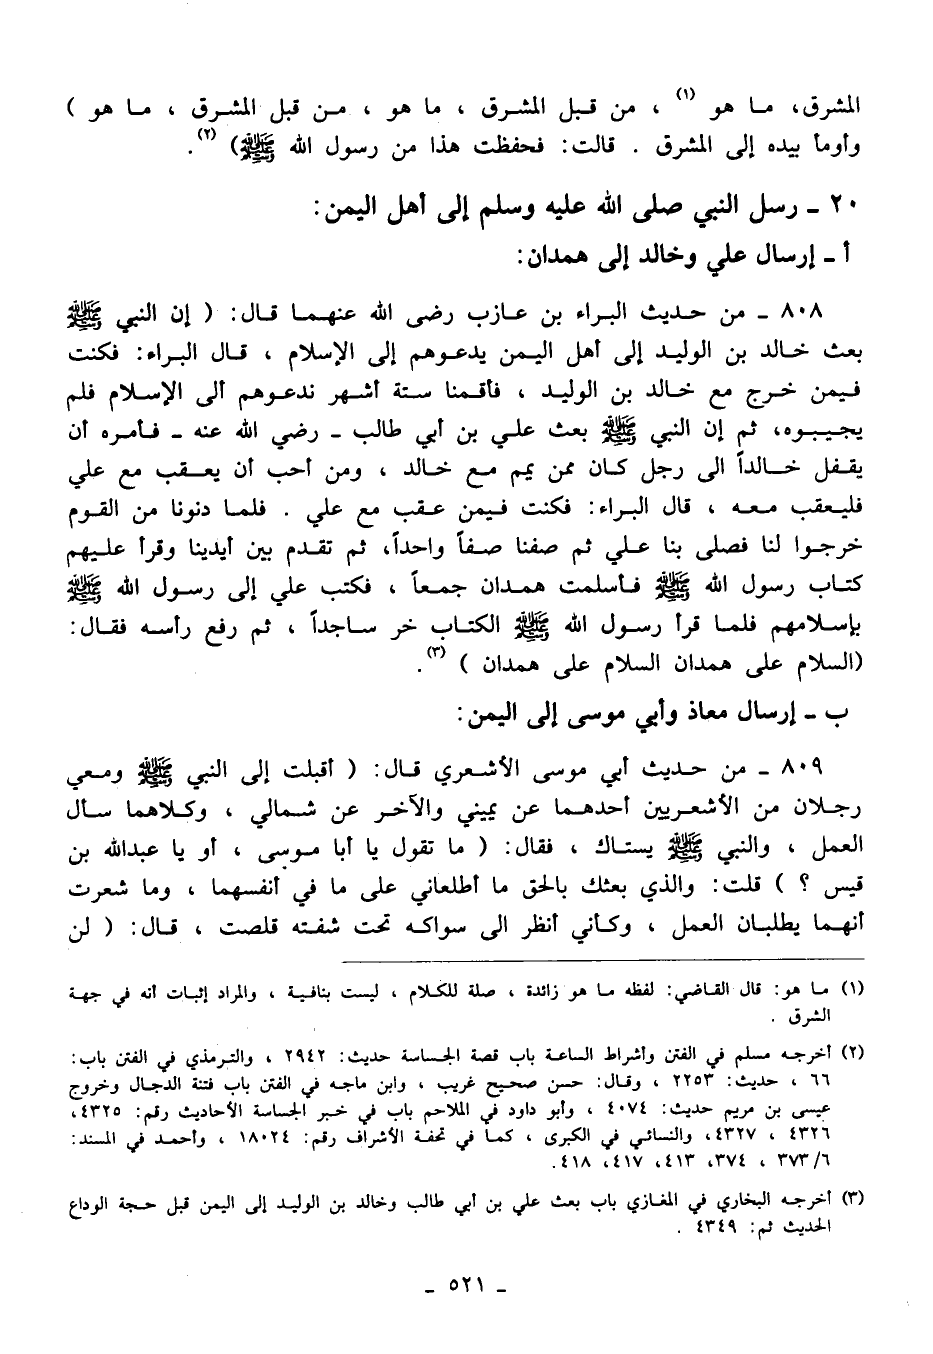 المشرق، ما هو (١) ، من قبل المشرق ، ما هو ، من قبل المشرق ، ما هو )
وأومأ بيده إلى المشرق . قالت: فحفظت هذا من رسول الله ﷺ) (٢).
٢٠ ـ رسل النبي صلى الله عليه وسلم إلى أهل اليمن:
أ ـ إرسال علي وخالد إلى همدان:
٨٠٨ ـ من حديث البراء بن عازب رضى الله عنهما قال: ( إن النبي ﷺ
بعث خالد بن الوليد إلى أهل اليمن يدعوهم إلى الإسلام ، قال البراء: فكنت
فيمن خرج مع خالد بن الوليد ، فأقمنا ستة أشهر ندعوهم ألى الإسلام فلم
يجيبوه، ثم إن النبي ﷺ بعث علي بن أبي طالب ـ رضي الله عنه ـ فأمره أن
يقفل خالداً الى رجل كان ممن يمم مع خالد ، ومن أحب أن يعقب مع علي
فليعقب معه ، قال البراء: فكنت فيمن عقب مع علي . فلما دنونا من القوم
خرجوا لنا فصلى بنا علي ثم صفنا صفاً واحداً، ثم تقدم بين أيدينا وقرأ عليهم
كتاب رسول الله ﷺ فأسلمت همدان جمعاً ، فكتب علي إلى رسول الله ﷺ
بإسلامهم فلما قرأ رسول الله ﷺ الكتاب خر ساجداً ، ثم رفع رأسه فقال:
(السلام على همدان السلام على همدان ) (٣).
ب ـ إرسال معاذ وأبي موسى إلى اليمن:
٨٠٩ ـ من حديث أبي موسى الأشعري قال: ( أقبلت إلى النبي ﷺ ومعي
رجلان من الأشعريين أحدهما عن يميني والآخر عن شمالي ، وكلاهما سأل
العمل ، والنبي ﷺ يستاك ، فقال: ( ما تقول يا أبا موسى ، أو يا عبدالله بن
قيس ؟ ) قلت: والذي بعثك بالحق ما أطلعاني على ما في أنفسهما ، وما شعرت
أنهما يطلبان العمل ، وكأني أنظر الى سواكه تحت شفته قلصت ، قال: ( لن
(١) ما هو: قال القاضي: لفظه ما هو زائدة ، صلة للكلام ، ليست بنافية ، والمراد إثبات أنه في جهة
الشرق .
(٢) أخرجه مسلم في الفتن وأشراط الساعة باب قصة الجساسة حديث: ٢٩٤٢ ، والترمذي في الفتن باب:
٦٦ ، حديث: ٢٢٥٣ ، وقال: حسن صحيح غريب ، وابن ماجه في الفتن باب فتنة الدجال وخروج
عيسى بن مريم حديث: ٤٠٧٤ ، وأبو داود في الملاحم باب في خبر الجساسة الأحاديث رقم: ٤٣٢٥،
٤٣٢٦ ، ٤٣٢٧، والنسائي في الكبرى ، كما في تحفة الأشراف رقم: ١٨٠٢٤ ، وأحمد في المسند:
٣٧٣/٦ ، ٣٧٤، ٤١٣، ٤١٧، ٤١٨.
(٣) أخرجه البخاري في المغازي باب بعث علي بن أبي طالب وخالد بن الوليد إلى اليمن قبل حجة الوداع
الحديث ثم: ٤٣٤٩ .
ـ ٥٢١ ـ